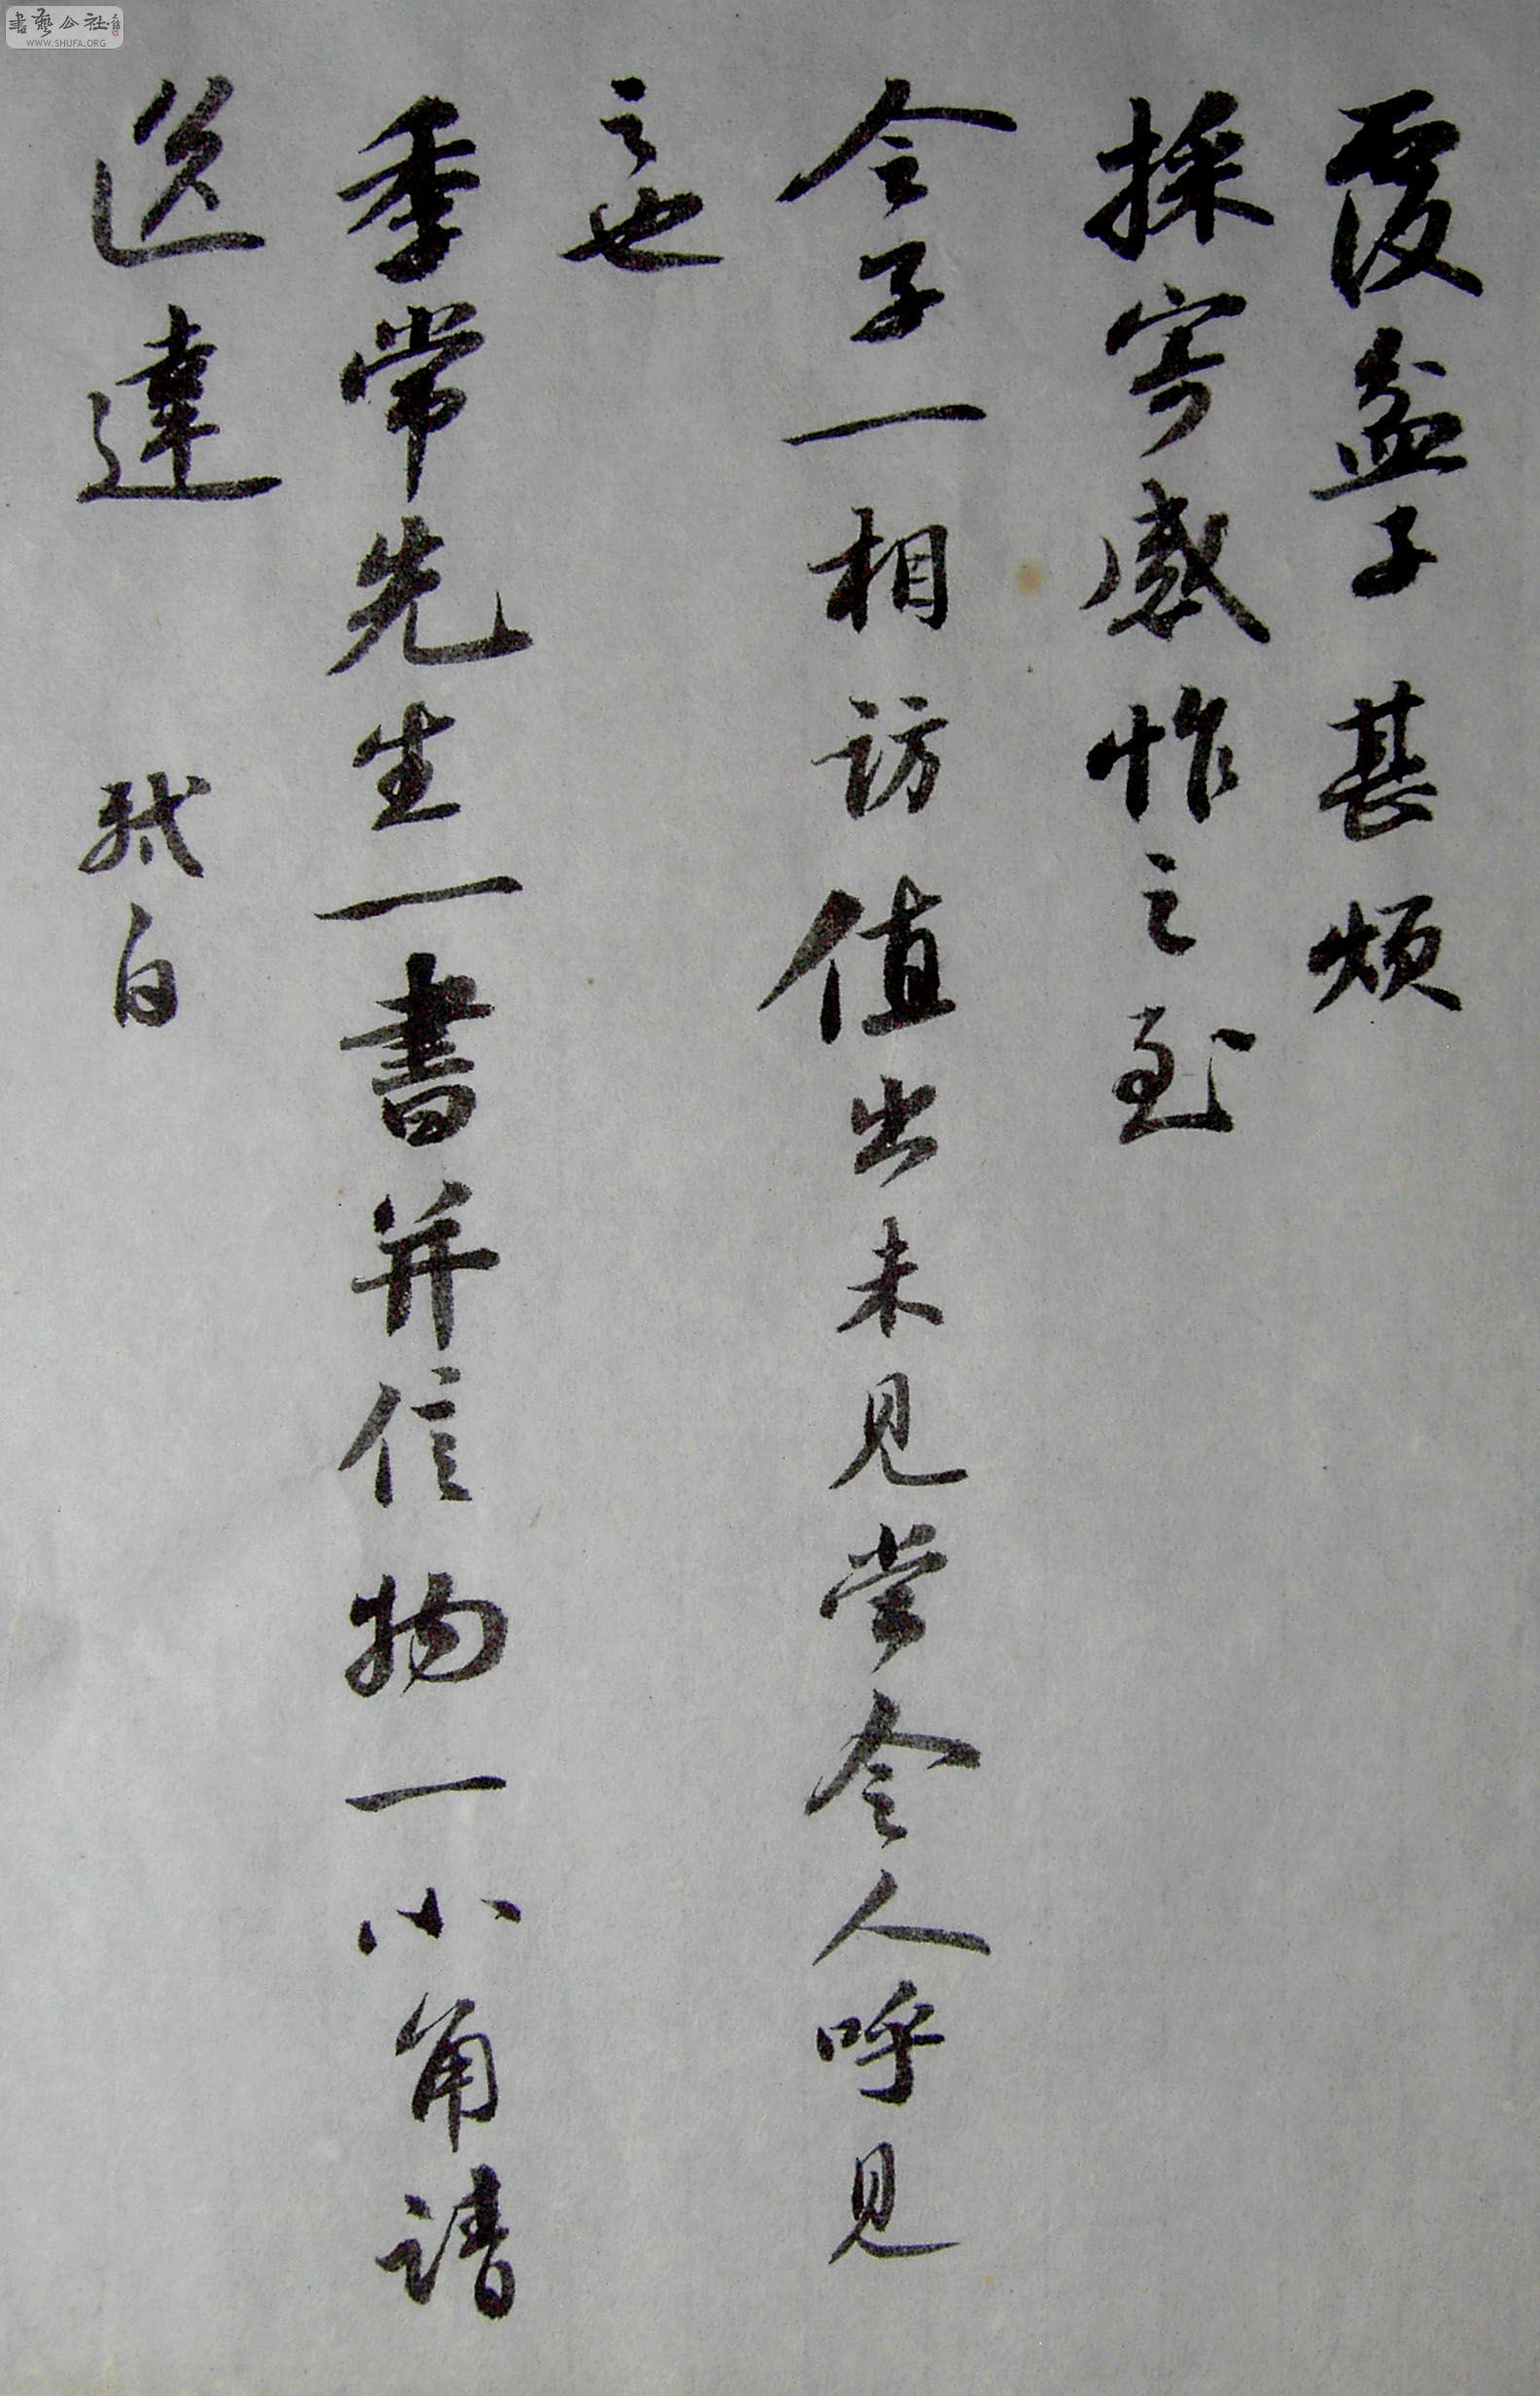 覆盆子甚煩
採寄感怍之至
令子一相訪值出未見當令人呼見
之也
季常先生一書并信物一小角請
送達
軾白
書藝公社
WWW.SHUFA.ORG